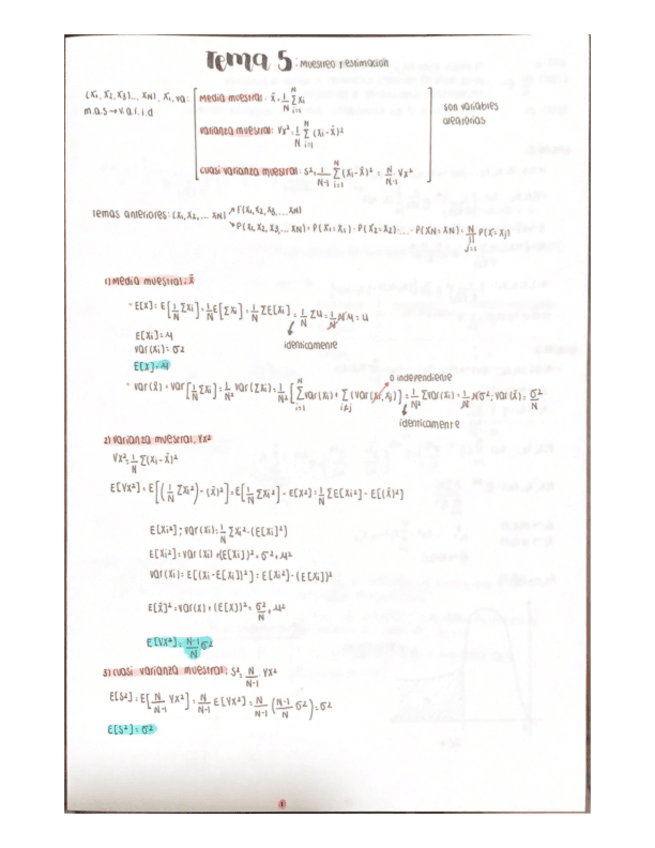 Tema 5: Muestreo y estimación
(X1, X2, X3)..., XN), Xi, va:
m.a.s → v.a.i.i.d
Media muestral: x̄ = 1/N ΣXi
Varianza muestral: Vx² = 1/N Σ (Xi - x̄)²
Cuasi varianza muestral: S² = 1/N-1 Σ (Xi - x̄)² = N/N-1 Vx²
son variables
aleatorias
Temas anteriores: (X1, X2, ... XN) ↗ F(X1, X2, X3, ... XN)
↘ P(X1, X2, X3, ... XN) = P(X1 = X1) · P(X2 = X2) · ... · P(XN = XN) = N∏j=1 P(X = Xj)
1) Media muestral: x̄
E[x̄] = E[1/N ΣXi] = 1/N E[ΣXi] = 1/N ΣE[Xi] = 1/N Σμ = 1/N Nμ = μ
identicamente
E[Xi] = μ
Var(Xi) = σ²
E[x̄] = μ
0 independiente
Var(x̄) = Var[1/N ΣXi] = 1/N² Var(ΣXi) = 1/N² [N Σ i=1 Var(Xi) + Σ i≠j (Var(Xi, Xj)] = 1/N² ΣVar(Xi) = 1/N² Nσ²; Var(x̄) = σ²/N
identicamente
2) Varianza muestral, Vx²
Vx² = 1/N Σ(Xi - x̄)²
E[Vx²] = E[(1/N ΣXi²) - (x̄)²] = E[1/N ΣXi²] - E[x²] = 1/N ΣE[Xi²] - E[(x̄)²]
E[Xi²]; Var(Xi) = 1/N ΣXi² - (E[Xi]²)
E[Xi²] = Var(Xi) + (E[Xi])² = σ² + μ²
Var(Xi) = E[(Xi - E[Xi])²] = E[Xi²] - (E[Xi])²
E[x̄]² = Var(x) + (E[x])² = σ²/N + μ²
E[Vx²] = N-1/N σ²
3) Cuasi varianza muestral: S² = N/N-1 Vx²
E[S²] = E[N/N-1 Vx²] = N/N-1 E[Vx²] = N/N-1 (N-1/N σ²) = σ²
E[S²] = σ²
1